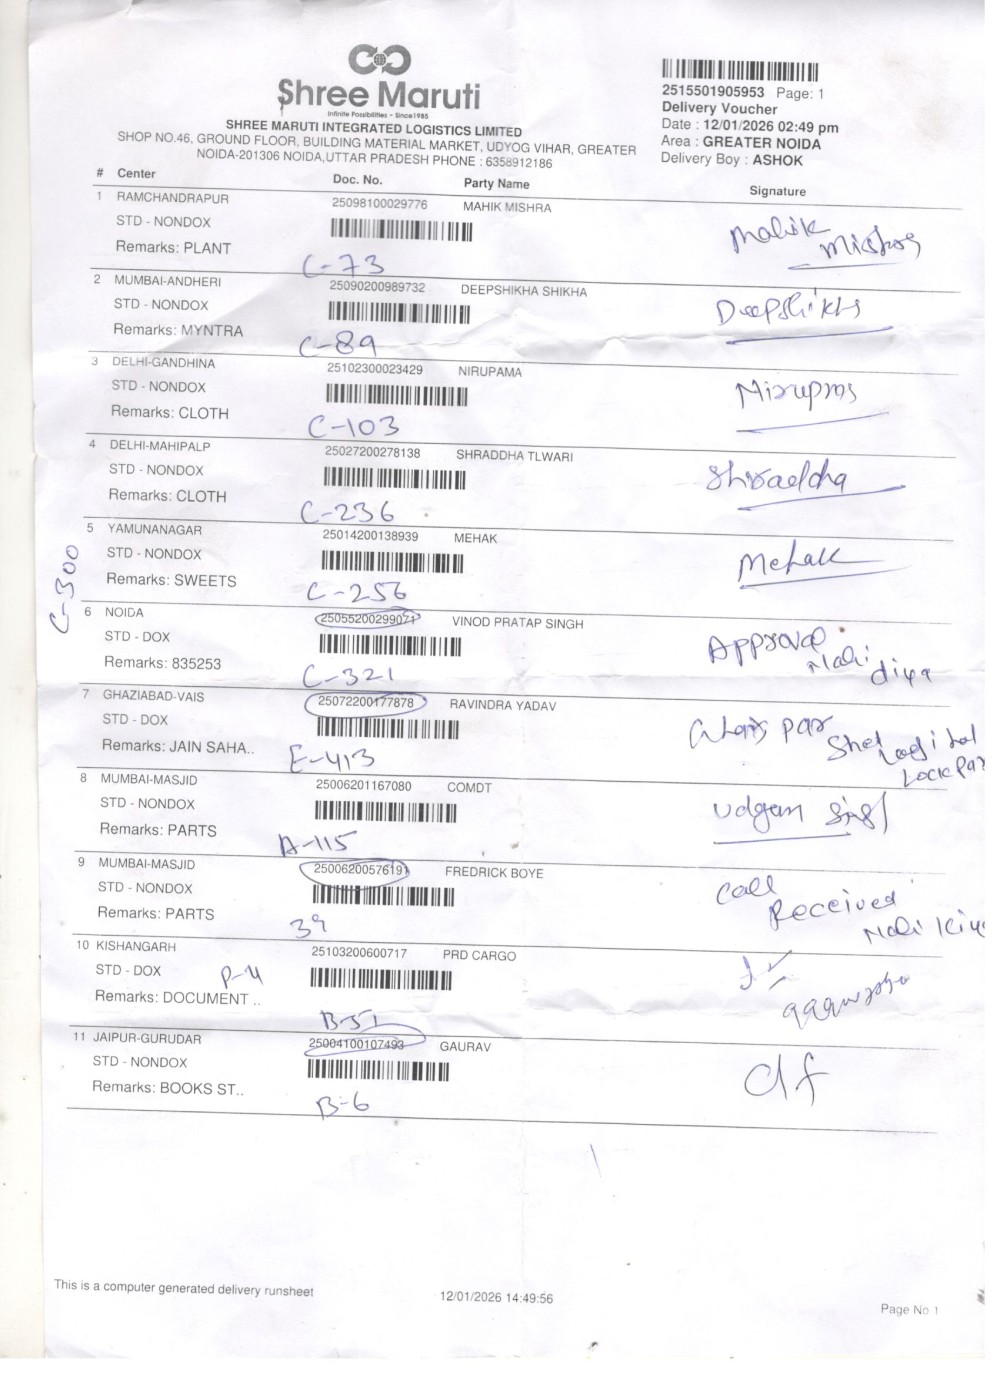 Shree Maruti
Infinite Possibilities - Since1985
SHREE MARUTI INTEGRATED LOGISTICS LIMITED
SHOP NO.46, GROUND FLOOR, BUILDING MATERIAL MARKET, UDYOG VIHAR, GREATER
NOIDA-201306 NOIDA,UTTAR PRADESH PHONE : 6358912186
2515501905953 Page: 1
Delivery Voucher
Date : 12/01/2026 02:49 pm
Area : GREATER NOIDA
Delivery Boy : ASHOK
# Center Doc. No. Party Name Signature
1 RAMCHANDRAPUR 25098100029776 MAHIK MISHRA
STD - NONDOX Mahik
Remarks: PLANT Mishra
C-73
2 MUMBAI-ANDHERI 25090200989732 DEEPSHIKHA SHIKHA
STD - NONDOX Deepshikha
Remarks: MYNTRA
C-89
3 DELHI-GANDHINA 25102300023429 NIRUPAMA
STD - NONDOX
Remarks: CLOTH
C-103
4 DELHI-MAHIPALP 25027200278138 SHRADDHA TLWARI
STD - NONDOX Shraddha
Remarks: CLOTH
C-236
5 YAMUNANAGAR 25014200138939 MEHAK
STD - NONDOX Mehak
Remarks: SWEETS
C-256
C-300
6 NOIDA 25055200299071 VINOD PRATAP SINGH
STD - DOX Approval
Remarks: 835253 Nahi diya
C-321
7 GHAZIABAD-VAIS 25072200177878 RAVINDRA YADAV
STD - DOX par
Remarks: JAIN SAHA.. Lock par
E-413
8 MUMBAI-MASJID 25006201167080 COMDT
STD - NONDOX
Remarks: PARTS
A-115
9 MUMBAI-MASJID 25006200576191 FREDRICK BOYE
STD - NONDOX Call
Remarks: PARTS Received Nahi Kiya
39
10 KISHANGARH 25103200600717 PRD CARGO
STD - DOX P-4
Remarks: DOCUMENT ..
B-51
11 JAIPUR-GURUDAR 25004100107493 GAURAV
STD - NONDOX
Remarks: BOOKS ST..
B-6
This is a computer generated delivery runsheet 12/01/2026 14:49:56 Page No 1